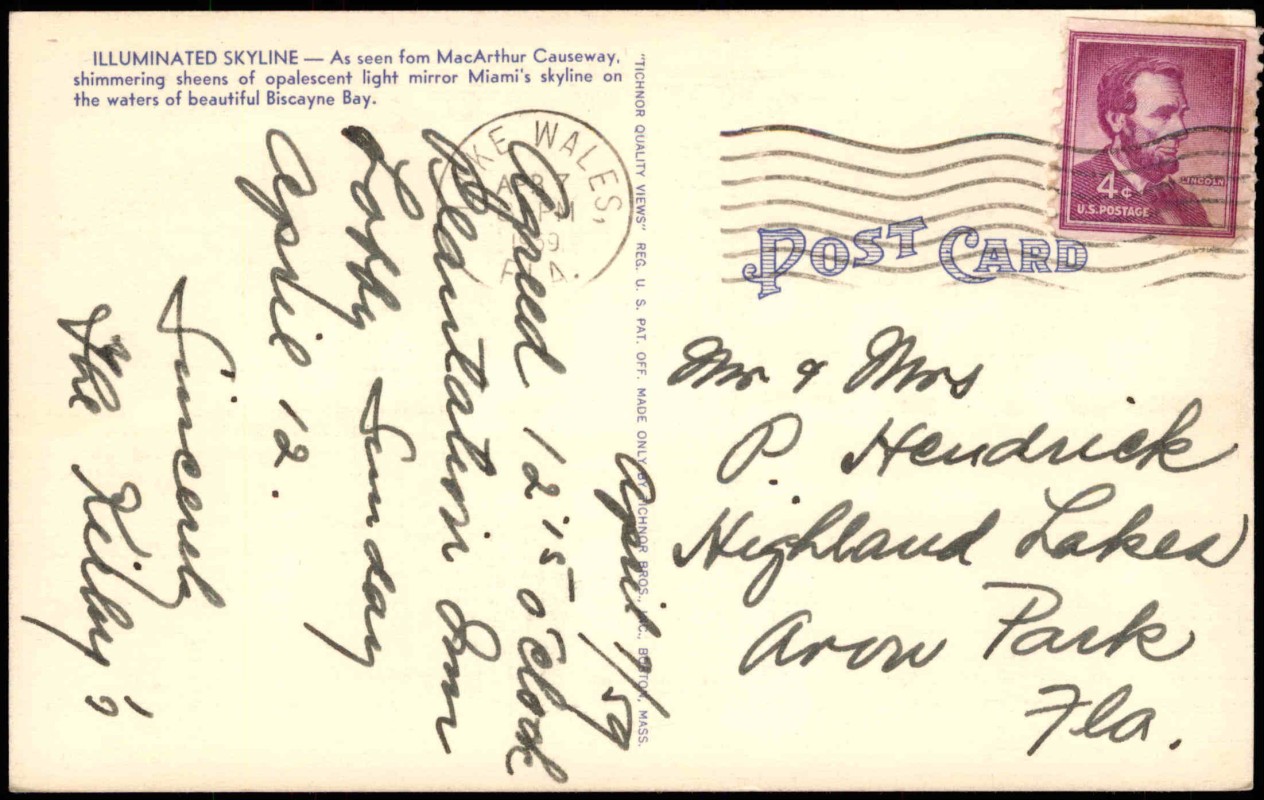 ILLUMINATED SKYLINE — As seen fom MacArthur Causeway,
shimmering sheens of opalescent light mirror Miami's skyline on
the waters of beautiful Biscayne Bay.
"TICHNOR QUALITY VIEWS" REG. U. S. PAT. OFF. MADE ONLY BY TICHNOR BROS., INC., BOSTON, MASS.
LAKE WALES,
APR 7
PM
1959
FLA.
4¢
LINCOLN
U.S. POSTAGE
POST CARD
April 7/59
Agreed 12'15 o'clock
Plantation Inn
Lobby Sunday
Aprie 12.
Sincerely
The Kilby's
Mr & Mrs
P. Hendrick
Highland Lakes
Avon Park
Fla.